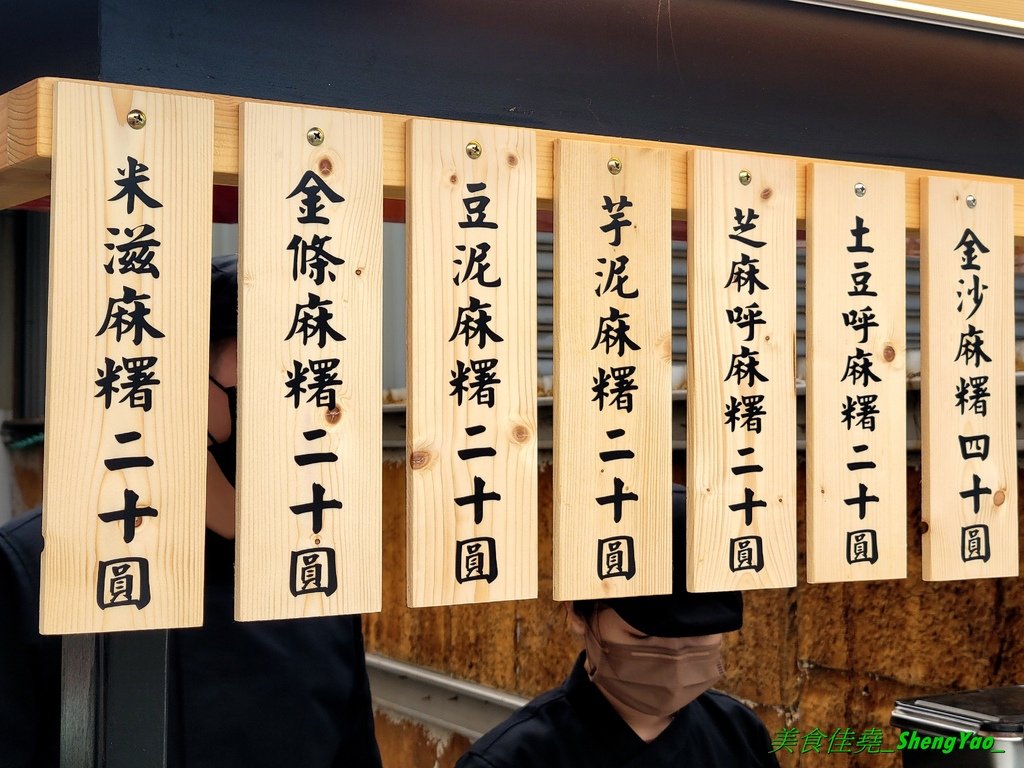 米滋麻糬二十圓
金條麻糬二十圓
豆泥麻糬二十圓
芋泥麻糬二十圓
芝麻呼麻糬二十圓
土豆呼麻糬二十圓
金沙麻糬四十圓
美食佳堯_ShengYao_